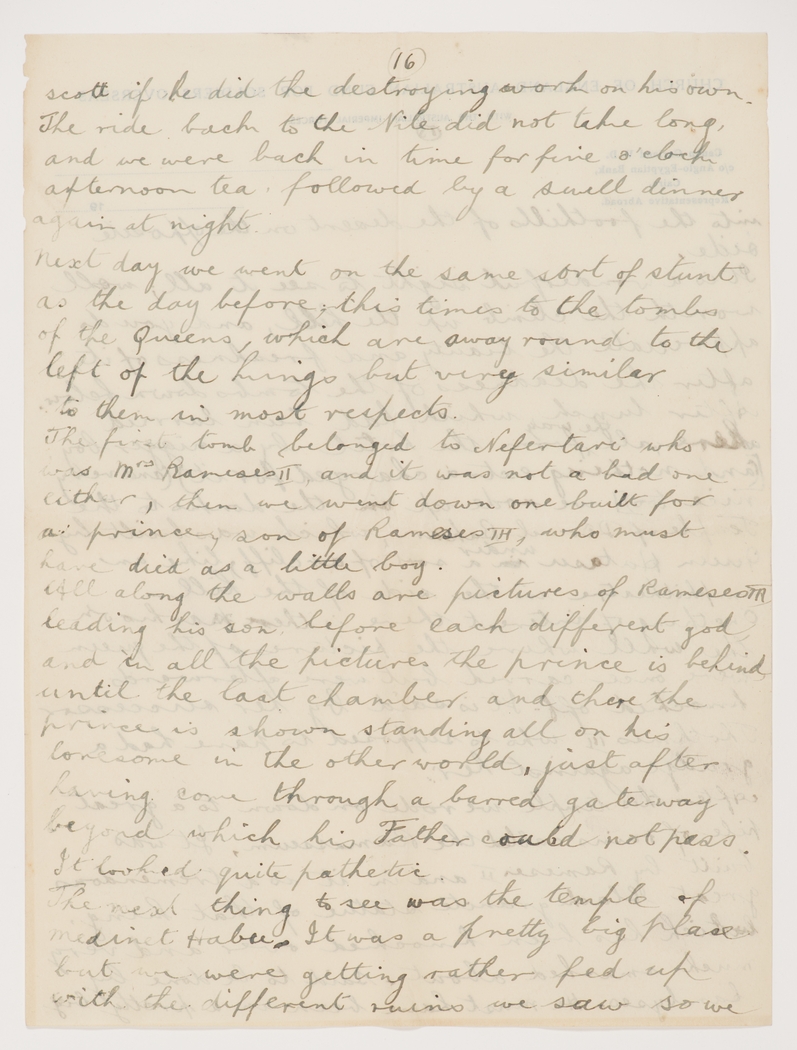 (16)
scott if he did the destroying work on his own.
The ride back to the Nile did not take long,
and we were back in time for five o'clock
afternoon tea. followed by a swill dinner
again at night.
Next day we went on the same sort of stunt
as the day before; this times to the tombs
of the Queens, which are away round to the
left of the kings but very similar
to them in most respects.
The first tomb belonged to Nefertari who
was Mrs Rameses II, and it was not a bad one
either, then we went down one built for
a prince, son of Rameses III, who must
have died as a little boy.
All along the walls are pictures of Rameses III
leading his son before each different god,
and in all the pictures the prince is behind,
until the last chamber and there the
prince is shown standing all on his
lonesome in the other world, just after
having come through a barred gate-way
beyond which his Father could not pass.
It looked quite pathetic.
The next thing to see was the temple of
Medinet Habu. It was a pretty big place
but we were getting rather fed up
with the different ruins we saw so we